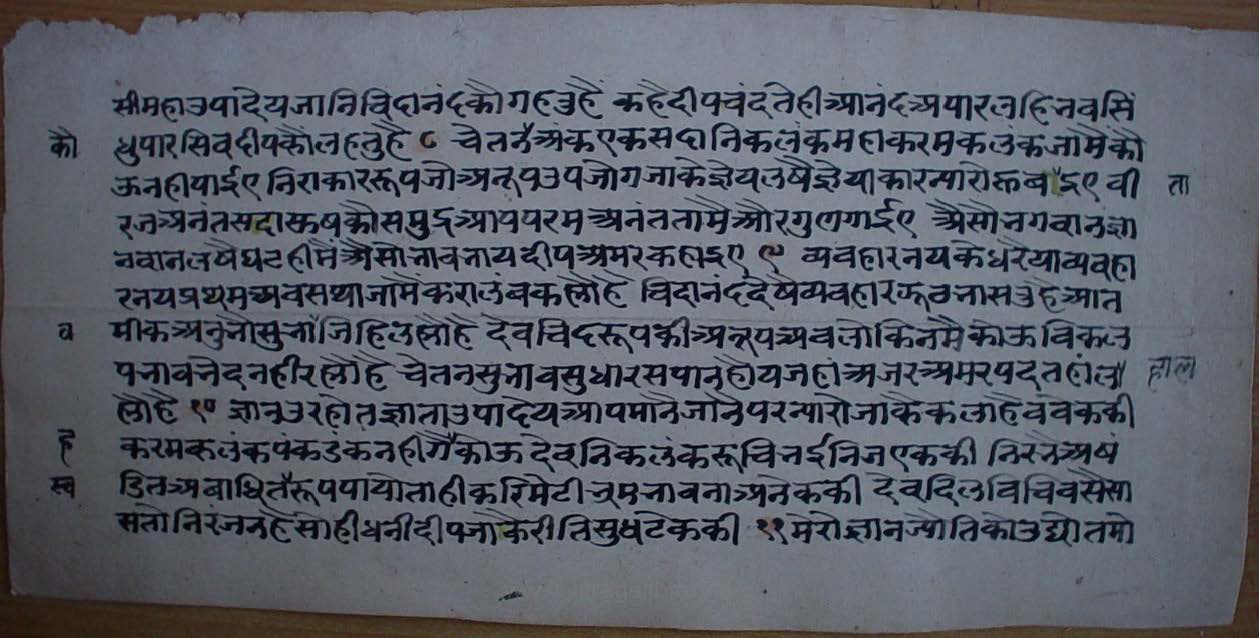 सीमहाउपादेयजानिचिदानंदकौगहतुहै कहैदीपचंदतेहीआनंदअपारलहिभवसिं
कौ धुपारसिवदीपकौंलहतुहै ८ चेतनैअंकएकसदानिकलंकमहाकरमकलंकजामैंकौ
ऊनहीपाईए निराकाररूपजोअनूपउपजोगजाकेज्ञेयलषैज्ञेयाकारन्यारोरूबइए वी ता
रजअनंतसदासुषकौसमुद्रआपपरमअनंततामैऔरगुणगाईए अैसौभगवानज्ञा
नवानलषैघटहीमैंअैसोभावभायदीपअमरकहाइए ९ व्यवहारनयकेधरैयाव्यवहा
रनयप्रथमअवसथाजामैंकरालंबकह्यौहै चिदानंददेषैव्यवहारझूठभासतुहैआत
व मीकअनुभौसुभौजिहिलह्यौहै देवचिदरूपकीअनूपअवलोकिनमैकोऊविकल
पभावभेदनहीरह्यौहै चेतनसुभावसुधारसपानहोयजहांअजरअमरपदतहांल
ह्यौहै १० ज्ञानउरहोतज्ञाताउपादेयआपमानैजानैपरन्यारोजाकैकलाहैववेककी
करमकलंकपंकडंकनहीगैकोऊ देवनिकलंकरूचिभईनिजएककी निरभैअषं
डितअबाधितैरूपपायौताहीकरिमेटीभ्रमभावनाअनेककी देवदिलविचिवसैसा
सतोनिरंजनहैसोहीधनीदीपजाकैरीतिसुधटेककी ११ मेरोज्ञानज्योतिकोउद्योतमो